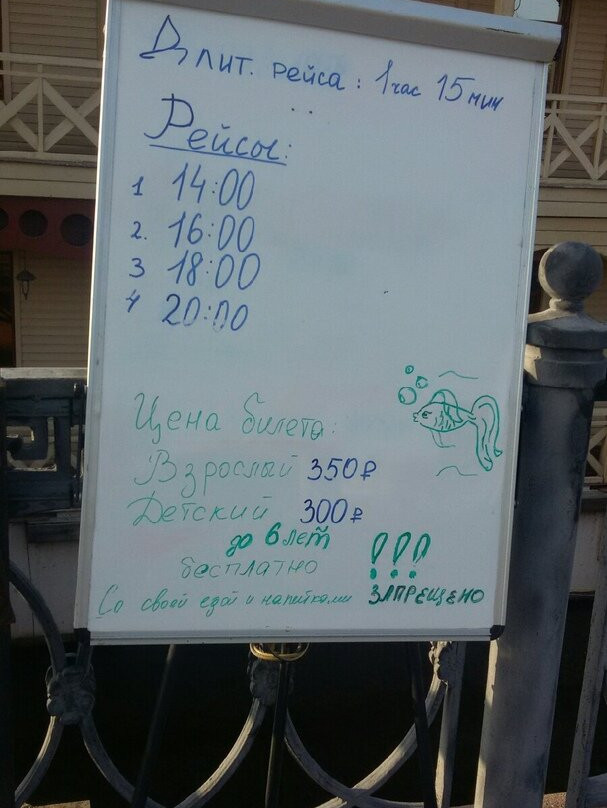 Длит. рейса : 1 час 15 мин
Рейсы:
1 14:00
2. 16:00
3 18:00
4 20:00
Цена билета:
Взрослый 350₽
Детский 300₽
до 6 лет
бесплатно !!!
Со своей едой и напитками ЗАПРЕЩЕНО